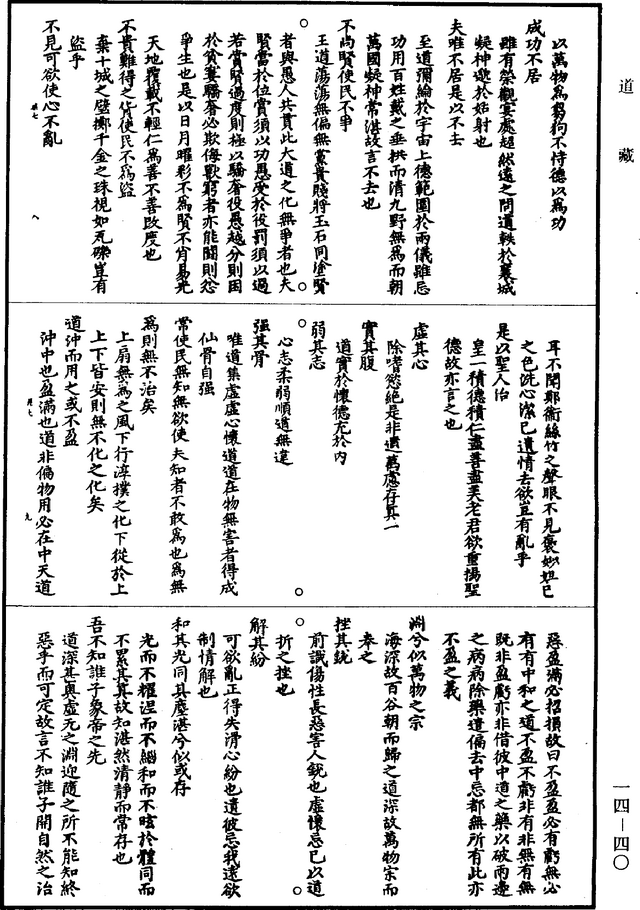 道藏
以萬物爲芻狗不恃德以爲功
成功不居
雖有榮觀宴處超然遠之問道軼於襄城
凝神邈於姑射也
夫唯不居是以不去
至道彌綸於宇宙上德範圍於兩儀雖忘
功用百姓戴之垂拱而清九野無爲而朝
萬國凝神常湛故言不去也
不尚賢使民不爭
王道蕩蕩無偏無黨貴賤將玉石同塗賢
者與愚人共貫此大道之化無爭者也夫
賢當於位賞須以功愚受於役罰須以過
若當賢過度則極以驕奢役愚越分則因
於貧寠驕奢必欺侮獸窮者亦能鬪則怨
爭生也是以日月曜彩不爲賢不肖易光
天地覆載不輕仁爲善不善改度也
不貴難得之貨使民不爲盜
棄十城之璧擲千金之珠視如瓦礫豈有
盜乎
不見可欲使心不亂
耳不聞鄭衞絲竹之聲眼不見褒妙妲己
之色洗心潔己遺情去欲豈有亂乎
是以聖人治
皇一積德積仁盡善盡美老君欲重揚聖
德故亦言之也
虛其心
除嗜慾絕是非遺萬慮存眞一
實其腹
道實於懷德充於內
弱其志
心志柔弱順道無違
強其骨
唯道集虛虛心懷道道在物無害者得成
仙骨自强
常使民無知無欲使夫知者不敢爲也爲無
爲則無不治矣
上扇無爲之風下行淳樸之化下從於上
上下皆安則無不化之化矣
道沖而用之或不盈
沖中也盈滿也道非偏物用必在中天道
惡盈滿必招損故曰不盈盈必有虧無必
有有中和之道不盈不虧非有非無有無
既非盈虧亦非借彼中道之藥以破兩邊
之病病除藥遣偏去中忘都無所有此亦
不盈之義
淵兮似萬物之宗
海深故百谷朝而歸之道深故萬物宗而
奉之
挫其銳
前識傷性長惡害人銳也虛懷忘己以道
折之挫也
解其紛
可欲亂正得失滑心紛也遺彼忘我遠欲
制情解也
和其光同其塵湛兮似或存
光而不耀涅而不緇和而不眩於體同而
不累其眞故知湛然清靜而常存也
吾不知誰子象帝之先
道深其奧虛无之淵迎隨之所不能知終
惡乎而可定故言不知誰子開自然之治
一四—四〇